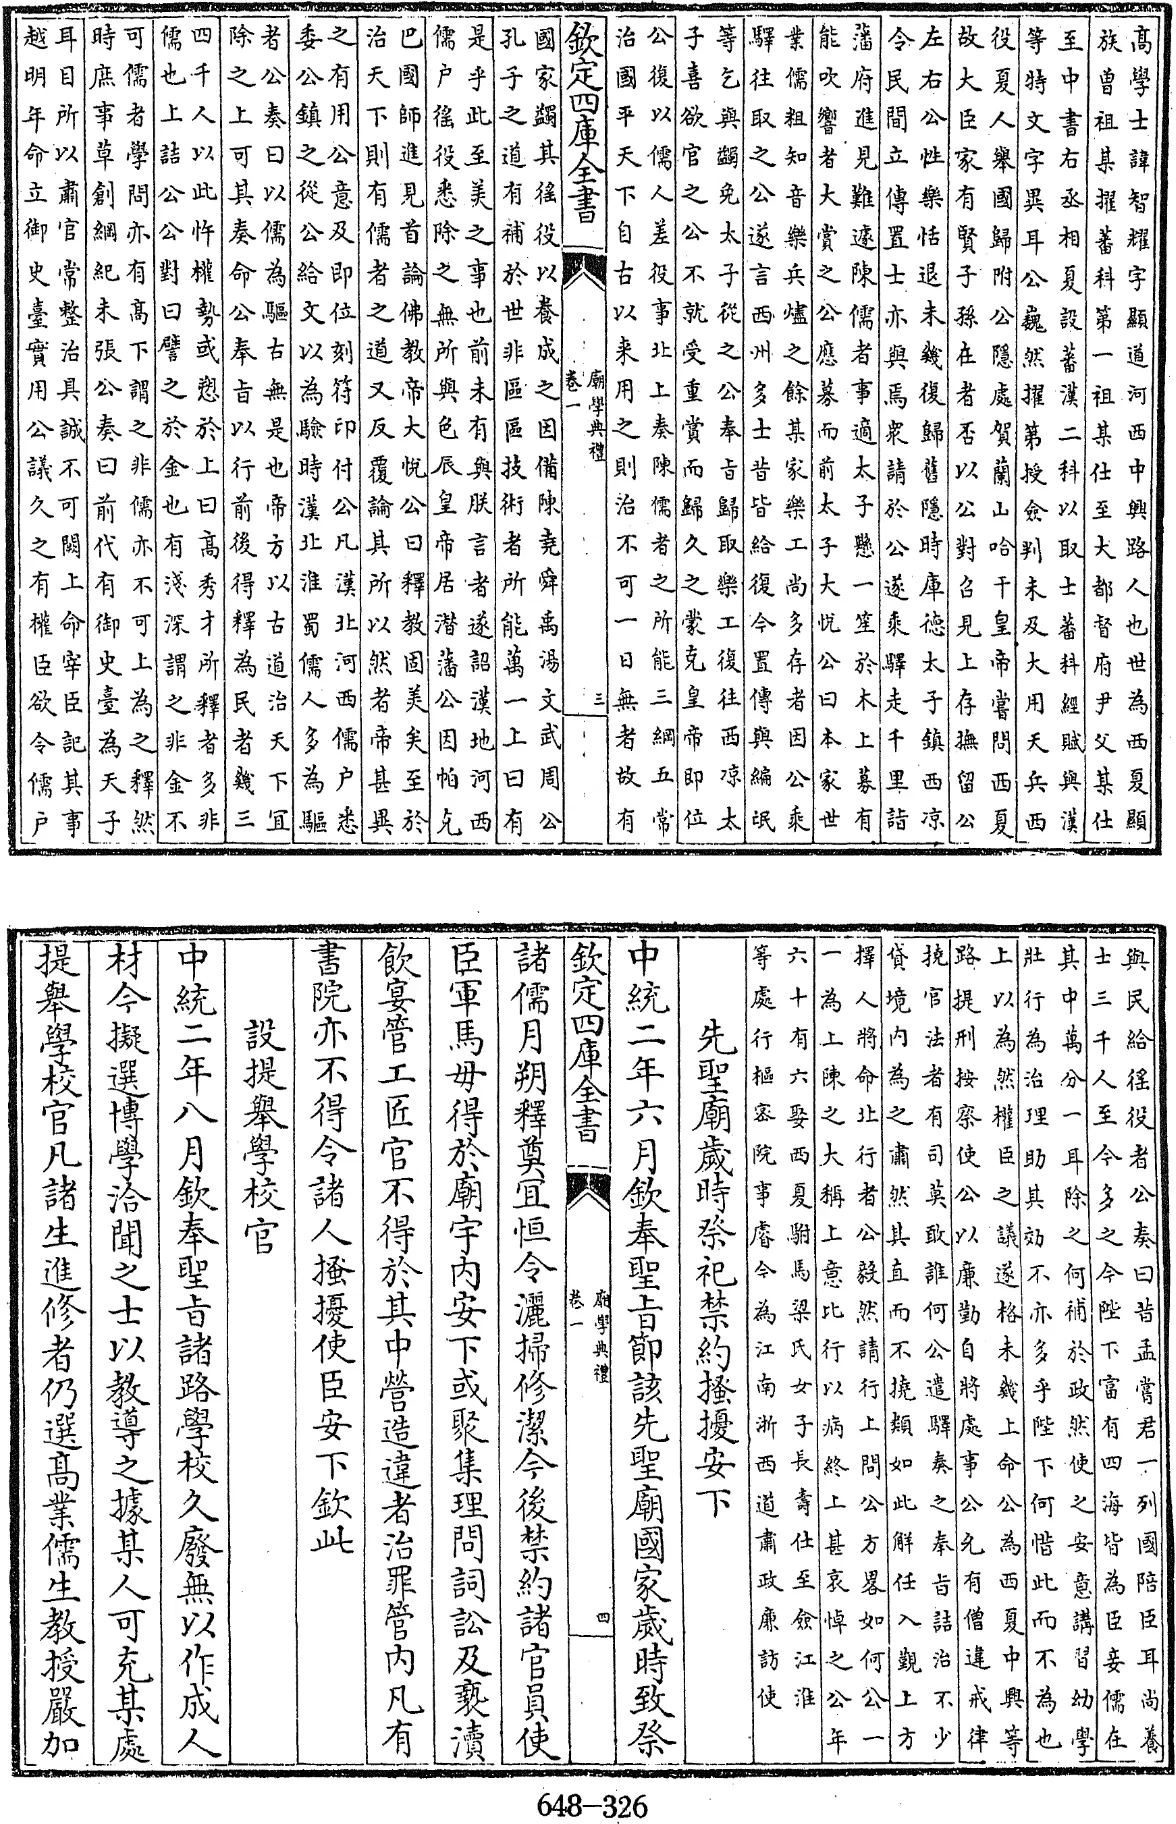 髙學士諱智耀字顯道河西中興路人也世為西夏顯
族曾祖某擢蕃科第一祖某仕至大都督府尹父某仕
至中書右丞相夏設蕃漢二科以取士蕃科經賦與漢
等特文字異耳公巍然擢第授僉判未及大用天兵西
役夏人舉國歸附公隱處賀蘭山哈干皇帝嘗問西夏
故大臣家有賢子孫在者否以公對召見上存撫留公
左右公性樂恬退未幾復歸舊隱時庫德太子鎮西凉
令民間立傳置士亦與焉衆請於公遂乘驛走千里詣
藩府進見難遽陳儒者事適太子懸一笙於木上募有
能吹響者大賞之公應募而前太子大悦公曰本家世
業儒粗知音樂兵燼之餘某家樂工尚多存者因公乘
驛往取之公遂言西州多士昔皆給復今置傳與編氓
等乞與蠲免太子從之公奉旨歸取樂工復往西凉太
子喜欲官之公不就受重賞而歸久之蒙克皇帝即位
公復以儒人差役事北上奏陳儒者之所能三綱五常
治國平天下自古以来用之則治不可一日無者故有
欽定四庫全書
廟學典禮
卷一
三
國家蠲其徭役以養成之因備陳堯舜禹湯文武周公
孔子之道有補於世非區區技術者所能萬一上曰有
是乎此至美之事也前未有與朕言者遂詔漢地河西
儒户徭役悉除之無所與色辰皇帝居潜藩公因帕克
巴國師進見首論佛教帝大悦公曰釋教固美矣至於
治天下則有儒者之道又反覆論其所以然者帝甚異
之有用公意及即位刻符印付公凡漢北河西儒户悉
委公鎮之從公給文以為驗時漢北淮蜀儒人多為驅
者公奏曰以儒為驅古無是也帝方以古道治天下宜
除之上可其奏命公奉旨以行前後得釋為民者幾三
四千人以此忤權勢或愬於上曰髙秀才所釋者多非
儒也上詰公公對曰譬之於金也有淺深謂之非金不
可儒者學問亦有髙下謂之非儒亦不可上為之釋然
時庶事草創綱紀未張公奏曰前代有御史臺為天子
耳目所以肅官常整治具誠不可闕上命宰臣記其事
越明年命立御史臺實用公議久之有權臣欲令儒户
與民給徭役者公奏曰昔孟嘗君一列國陪臣耳尚養
士三千人至今多之今陛下富有四海皆為臣妾儒在
其中萬分一耳除之何補於政然使之安意講習幼學
壯行為治理助其効不亦多乎陛下何惜此而不為也
上以為然權臣之議遂格未幾上命公為西夏中興等
路提刑按察使公以廉勤自將處事公允有僧違戒律
撓官法者有司莫敢誰何公遣驛奏之奉旨詰治不少
貸境内為之肅然其直而不撓類如此解任入覲上方
擇人將命北行者公毅然請行上問公方畧如何公一
一為上陳之大稱上意比行以病終上甚哀悼之公年
六十有六娶西夏駙馬梁氏女子長壽仕至僉江淮
等處行樞密院事睿今為江南浙西道肅政廉訪使
先聖廟歲時祭祀禁約搔擾安下
中統二年六月欽奉聖旨節該先聖廟國家歲時致祭
欽定四庫全書
廟學典禮
卷一
四
諸儒月朔釋奠宜恒令灑掃修潔今後禁約諸官員使
臣軍馬毋得於廟宇内安下或聚集理問詞訟及褻瀆
飲宴管工匠官不得於其中營造違者治罪管内凡有
書院亦不得令諸人搔擾使臣安下欽此
設提舉學校官
中統二年八月欽奉聖旨諸路學校久廢無以作成人
材今擬選博學洽聞之士以教導之據某人可充某處
提舉學校官凡諸生進修者仍選髙業儒生教授嚴加
648-326